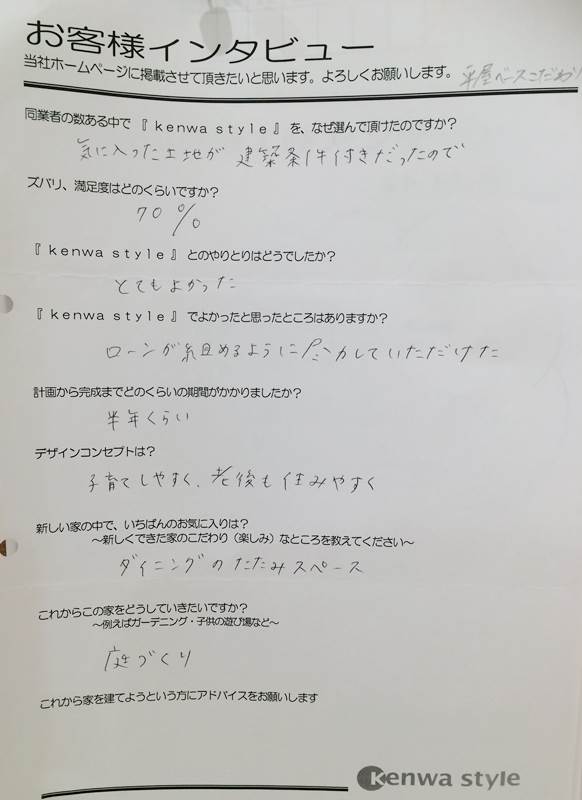 お客様インタビュー
当社ホームページに掲載させて頂きたいと思います。よろしくお願いします。 平屋ベースこだわり
同業者の数ある中で『 kenwa style 』を、なぜ選んで頂けたのですか？
気に入った土地が 建築条件付きだったので
ズバリ、満足度はどのくらいですか？
70 %
『 kenwa style 』とのやりとりはどうでしたか？
とてもよかった
『 kenwa style 』でよかったと思ったところはありますか？
ローンが組めるように尽力していただけた
計画から完成までどのくらいの期間がかかりましたか？
半年くらい
デザインコンセプトは？
子育てしやすく、老後も住みやすく
新しい家の中で、いちばんのお気に入りは？
～新しくできた家のこだわり（楽しみ）なところを教えてください～
ダイニングのたたみスペース
これからこの家をどうしていきたいですか？
～例えばガーデニング・子供の遊び場など～
庭づくり
これから家を建てようという方にアドバイスをお願いします
Kenwa style